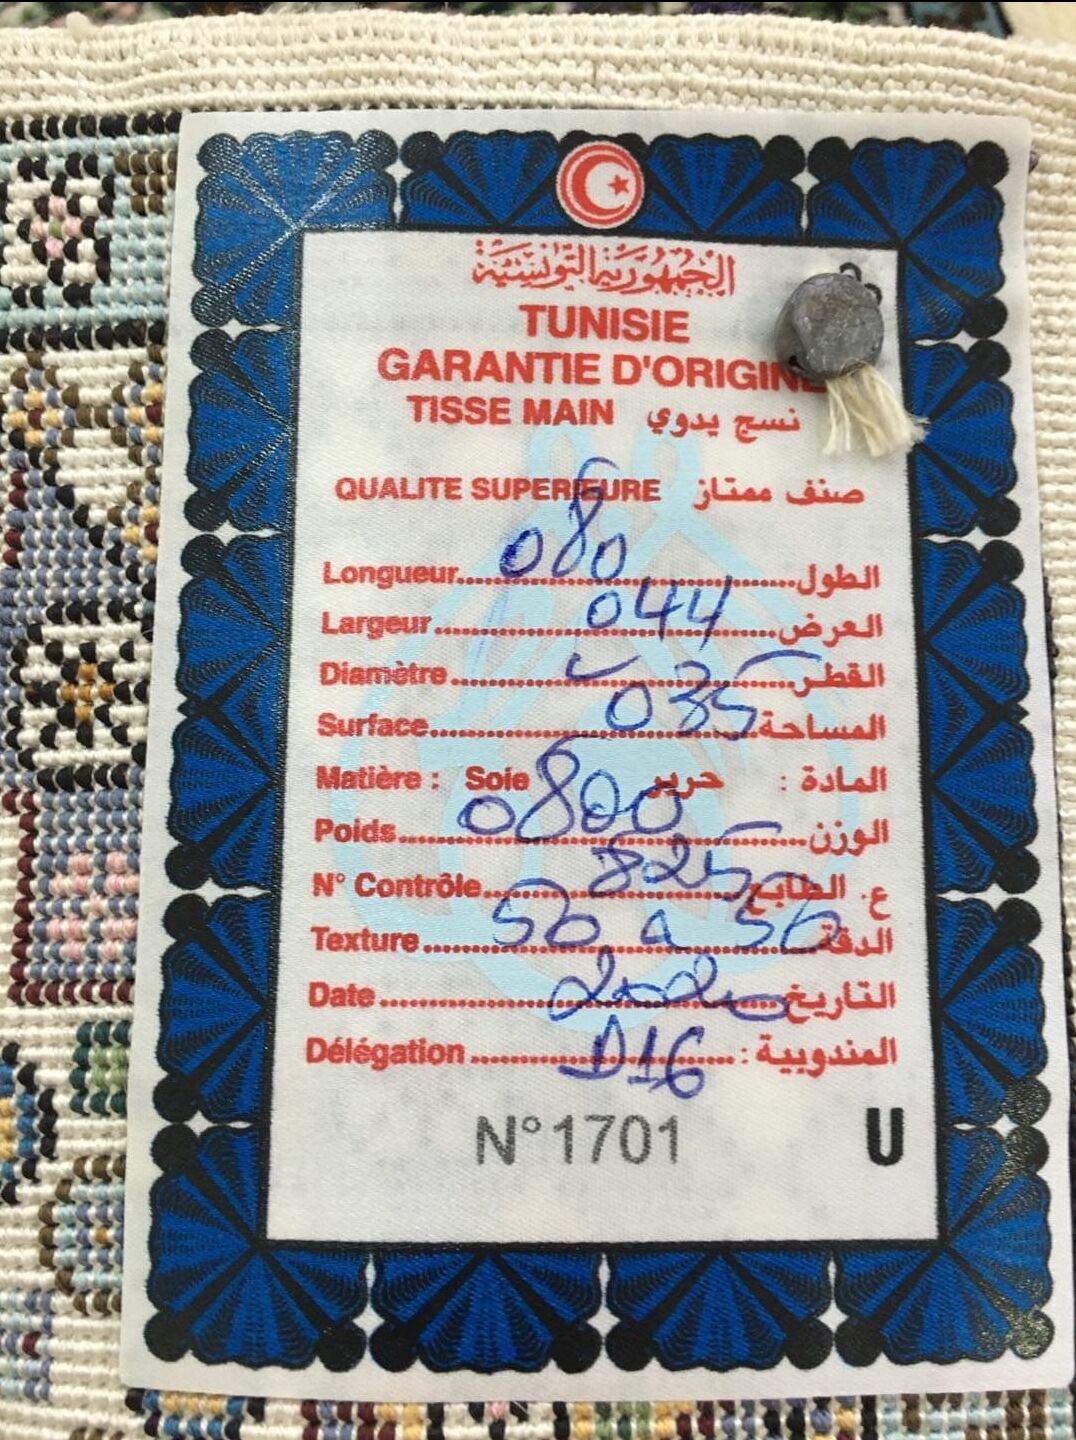 الجمهورية التونسية
TUNISIE
GARANTIE D'ORIGINE
TISSE MAIN نسج يدوي
QUALITE SUPERIEURE صنف ممتاز
Longueur..........080..........الطول
Largeur..........044..........العرض
Diamètre....................القطر
Surface..........035..........المساحة
Matière : Soie حرير : المادة
Poids..........0800..........الوزن
N° Contrôle..........825..........ع. الطابع
Texture..........50 a 50..........الدقة
Date..........2020..........التاريخ
Délégation..........D16..........: المندوبية
N°1701 U